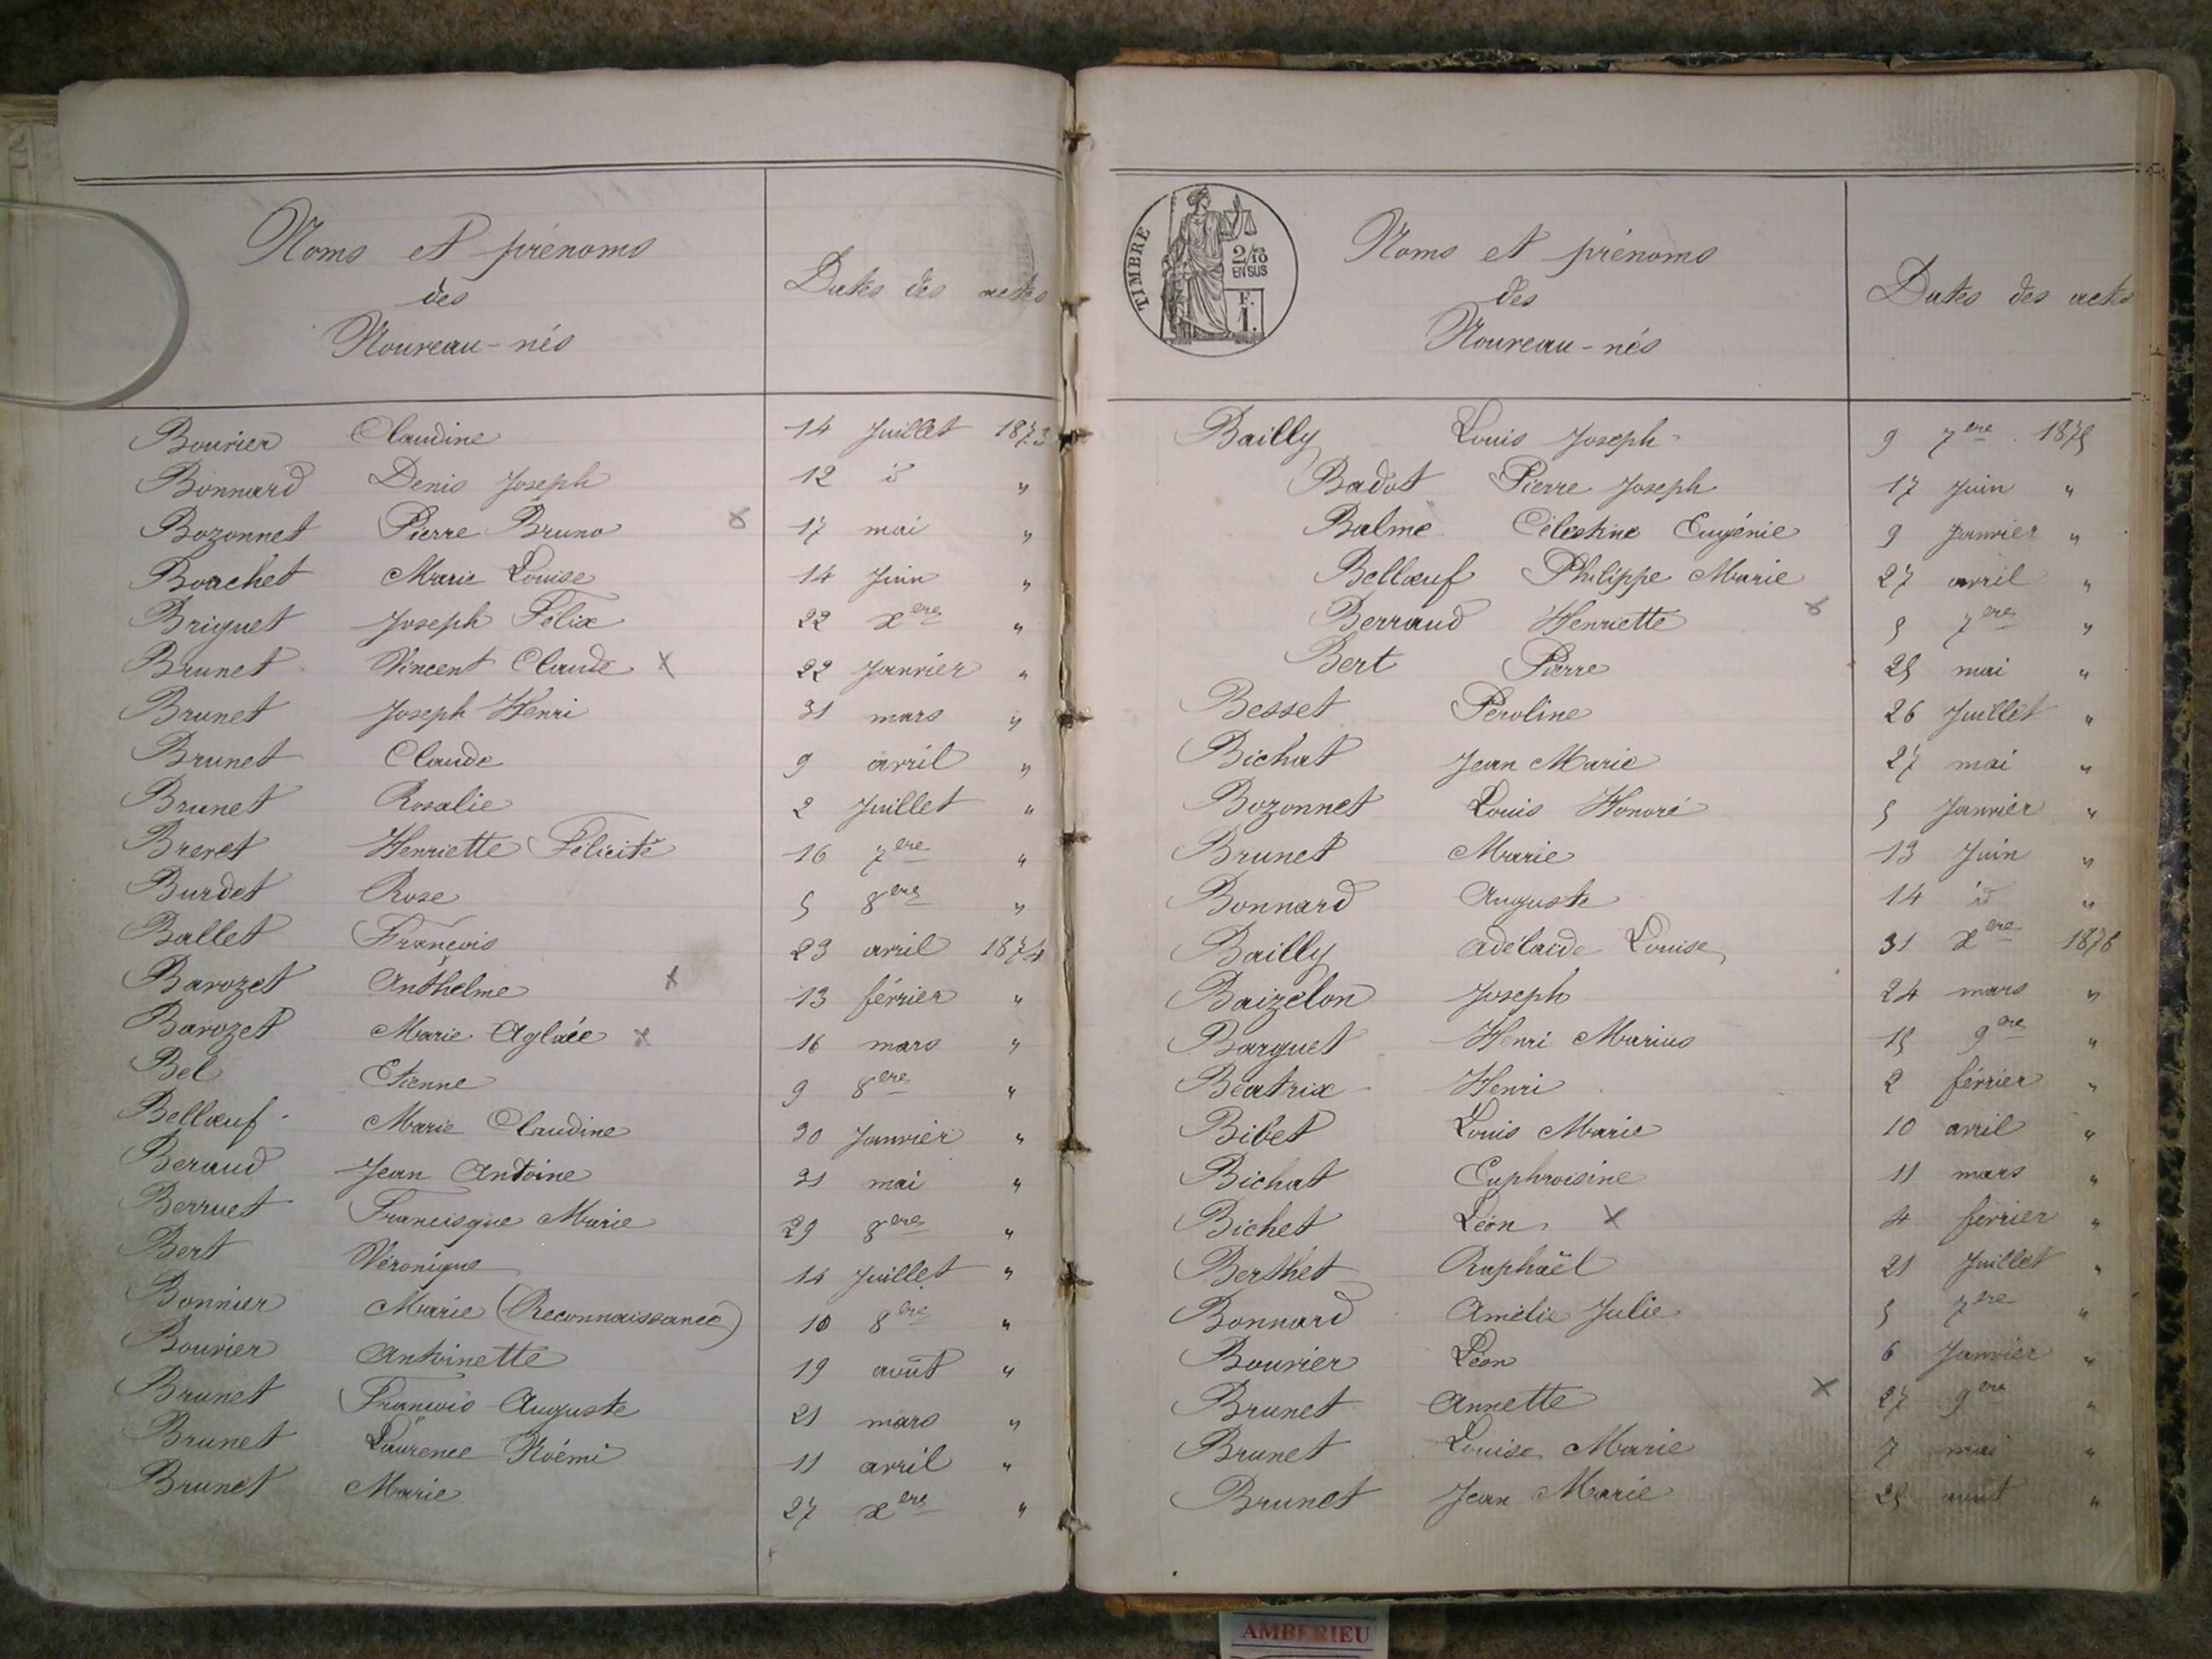 Noms et prénoms
des
Nouveau-nés
Dates des actes
Bouvier Claudine 14 Juillet 1873
Bonnard Denis Joseph 12 id "
Bozonnet Pierre Bruno x 17 mai "
Bouchet Marie Louise 14 Juin "
Briguet Joseph Félix 22 xbre "
Brunet Vincent Claude x 22 Janvier "
Brunet Joseph Henri 31 mars "
Brunet Claude 9 avril "
Brunet Rosalie 2 Juillet "
Brevet Henriette Félicité 16 7bre "
Burdet Rose 5 8bre "
Ballet François 23 avril 1874
Barozet Anthelme x 13 février "
Barozet Marie Aglaée x 16 mars "
Bel Etienne 9 8bre "
Bellœuf Marie Claudine 30 Janvier "
Beraud Jean Antoine 31 mai "
Berruet Francisque Marie 29 8bre "
Bert Véronique 14 Juillet "
Bonnier Marie (Reconnaissance) 10 8bre "
Bouvier Antoinette 19 août "
Brunet François Auguste 21 mars "
Brunet Laurence Noémi 11 avril "
Brunet Marie 27 xbre "
TIMBRE
2/10
EN SUS
F.
1.
Noms et prénoms
des
Nouveau-nés
Dates des actes
Bailly Louis Joseph 9 7bre 1875
Badot Pierre Joseph 17 Juin "
Balme Célestine Eugénie 9 Janvier "
Bellœuf Philippe Marie 27 avril "
Berraud Henriette x 5 7bre "
Bert Pierre 25 mai "
Besset Péroline 26 Juillet "
Bichat Jean Marie 27 mai "
Bozonnet Louis Honoré 5 Janvier "
Brunet Marie 13 Juin "
Bonnard Auguste 14 id "
Bailly Adélaïde Louise 31 xbre 1876
Baizelon Joseph 24 mars "
Barguet Henri Marius 15 9bre "
Béatrix Henri 2 février "
Bibet Louis Marie 10 avril "
Bichat Euphroisine 11 mars "
Bichet Léon x 4 février "
Berthet Raphaël 21 Juillet "
Bonnard Amélie Julie 5 7bre "
Bouvier Léon 6 Janvier "
Brunet Annette x 27 9bre "
Brunet Louise Marie 7 mai "
Brunet Jean Marie 25 août "
AMBERIEU